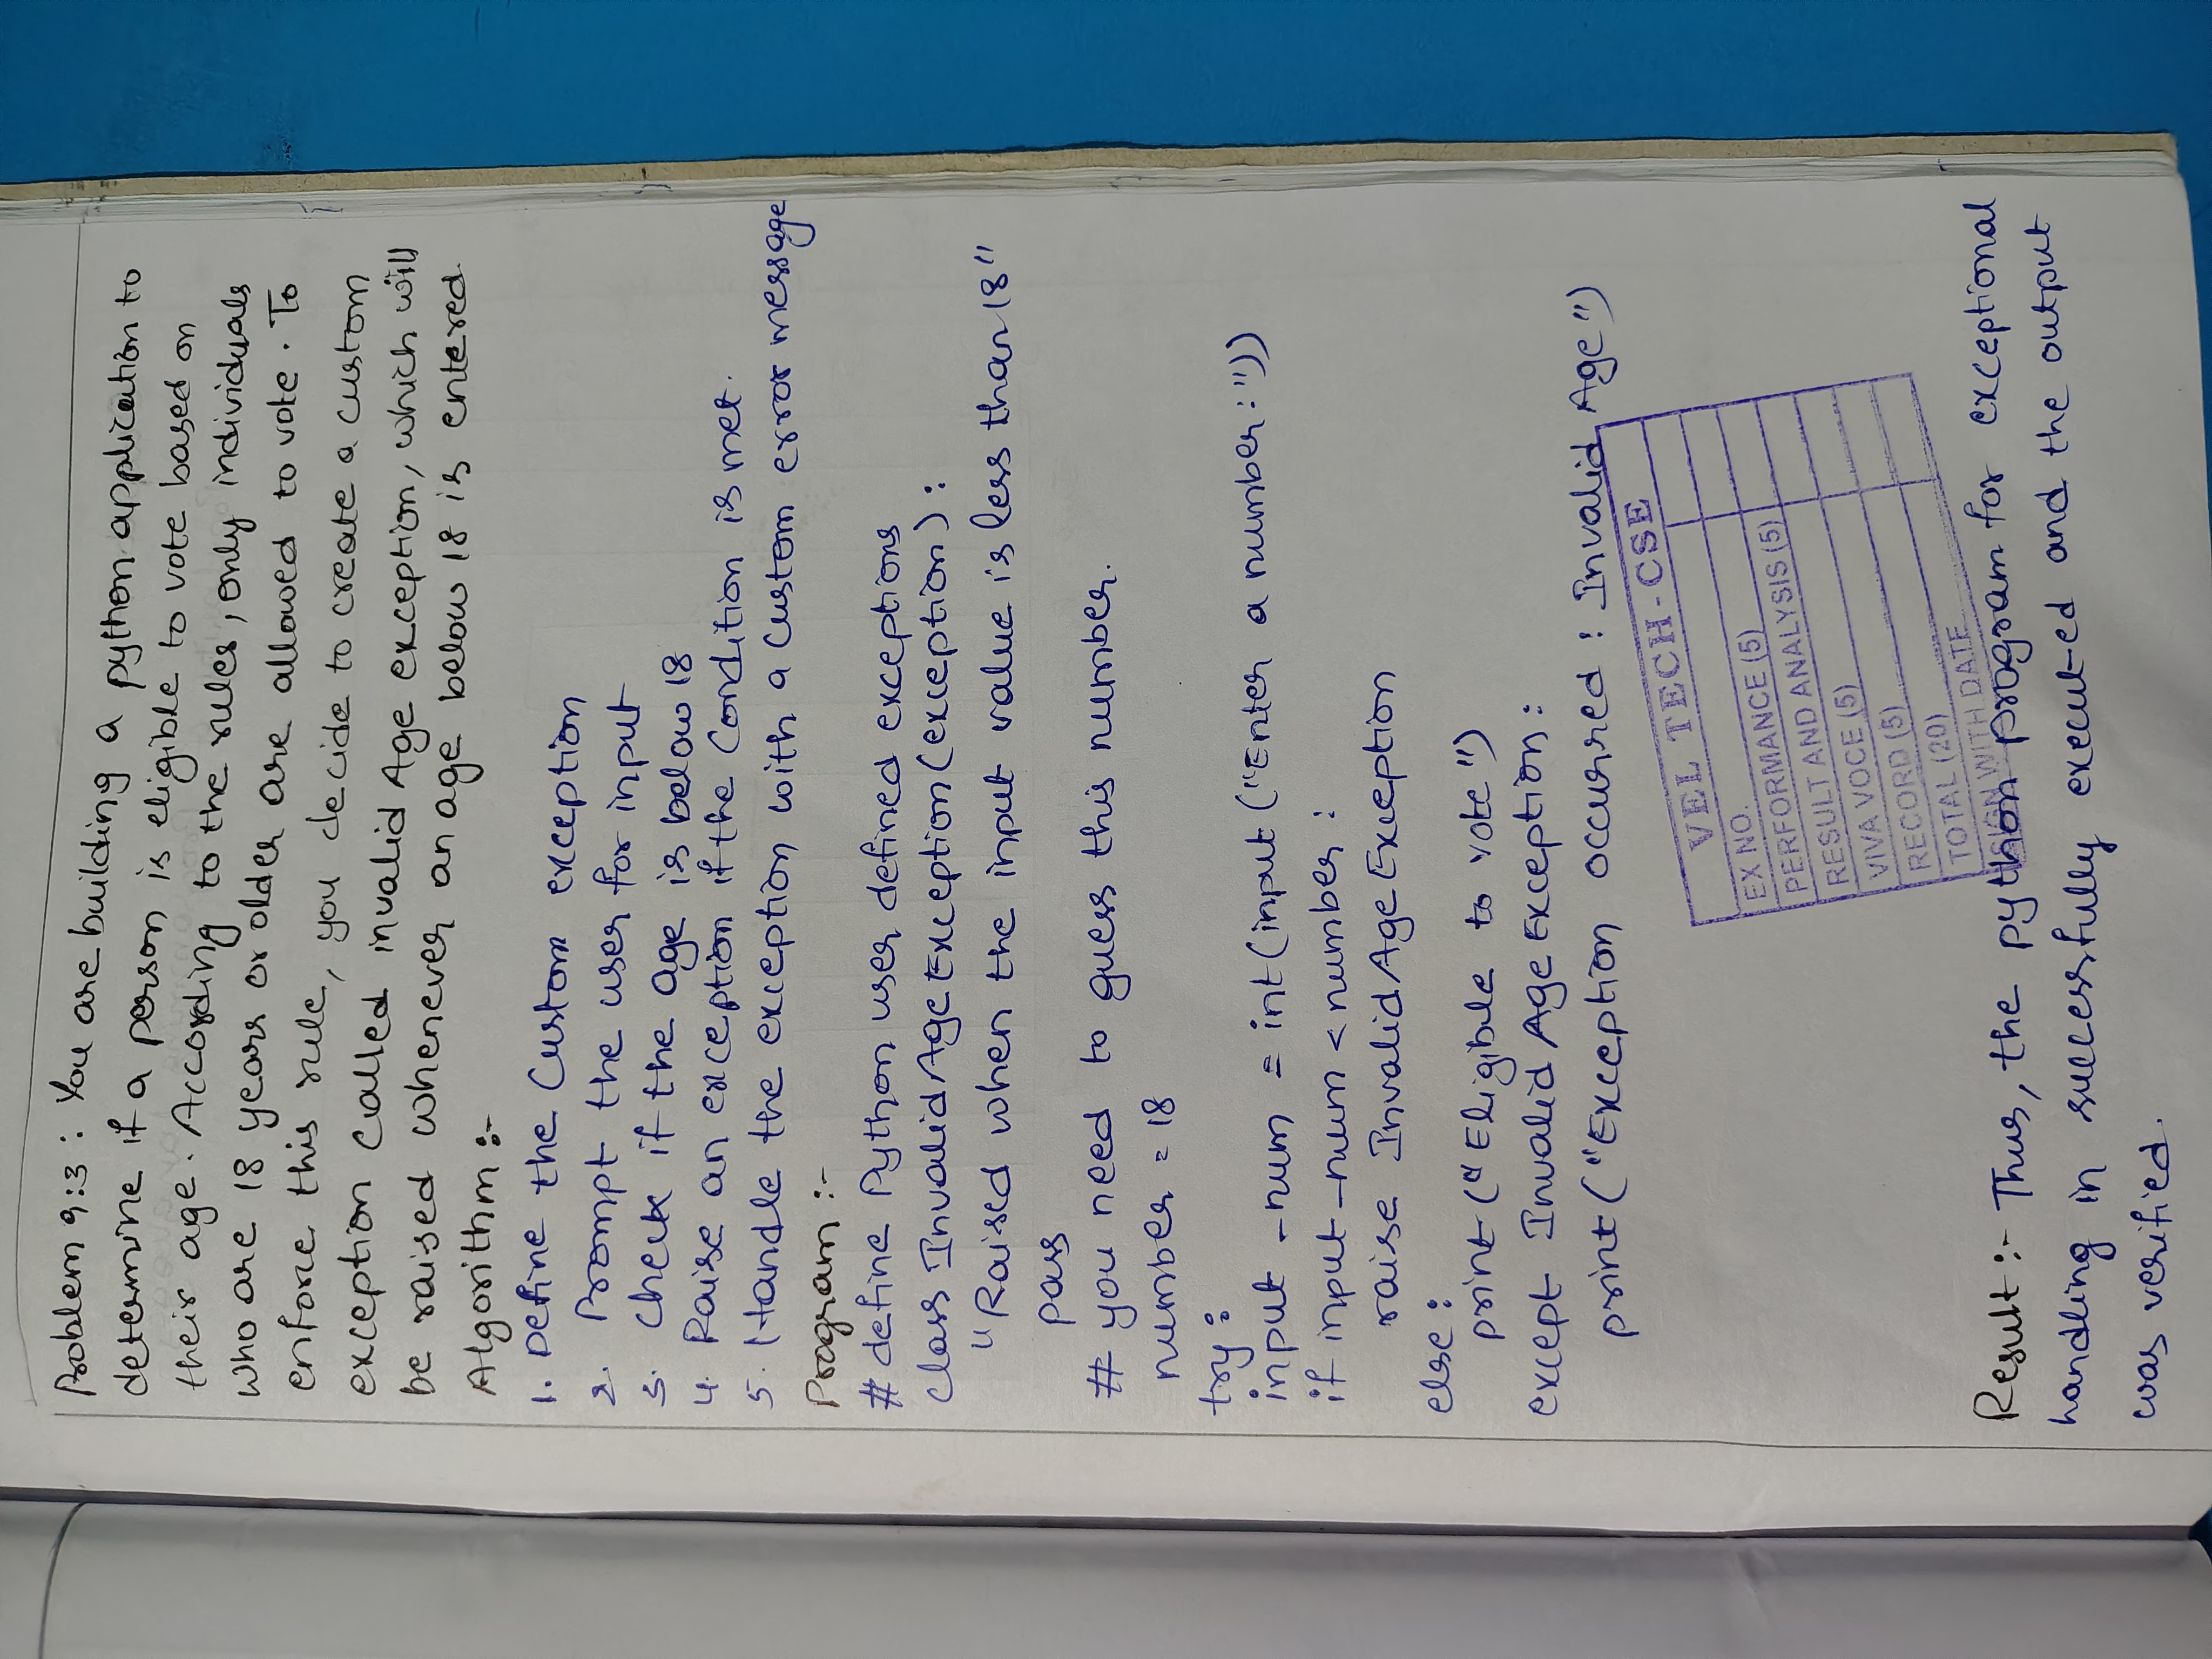 Problem 9:3 : You are building a python application to
determine if a person is eligible to vote based on
their age. According to the rules, only individuals
who are 18 years or older are allowed to vote. To
enforce this rule, you decide to create a custom
exception called invalid Age exception, which will
be raised whenever an age below 18 is entered.
Algorithm :-
1. Define the Custom exception
2. Prompt the user for input
3. Check if the age is below 18
4. Raise an exception if the Condition is met.
5. Handle the exception with a custom error message
Program :-
# define Python user defined exceptions
class InvalidAgeException(exception):
"Raised when the input value is less than 18"
pass
# you need to guess this number.
number = 18
try :
input _num = int(input ("Enter a number : "))
if input _num < number :
raise InvalidAgeException
else :
print ("Eligible to vote")
except Invalid Age Exception :
print ("Exception occurred : Invalid Age")
VEL TECH - CSE
EX NO.
PERFORMANCE (5)
RESULT AND ANALYSIS (5)
VIVA VOCE (5)
RECORD (5)
TOTAL (20)
SIGN WITH DATE
Result :- Thus, the python program for exceptional
handling in successfully executed and the output
was verified.